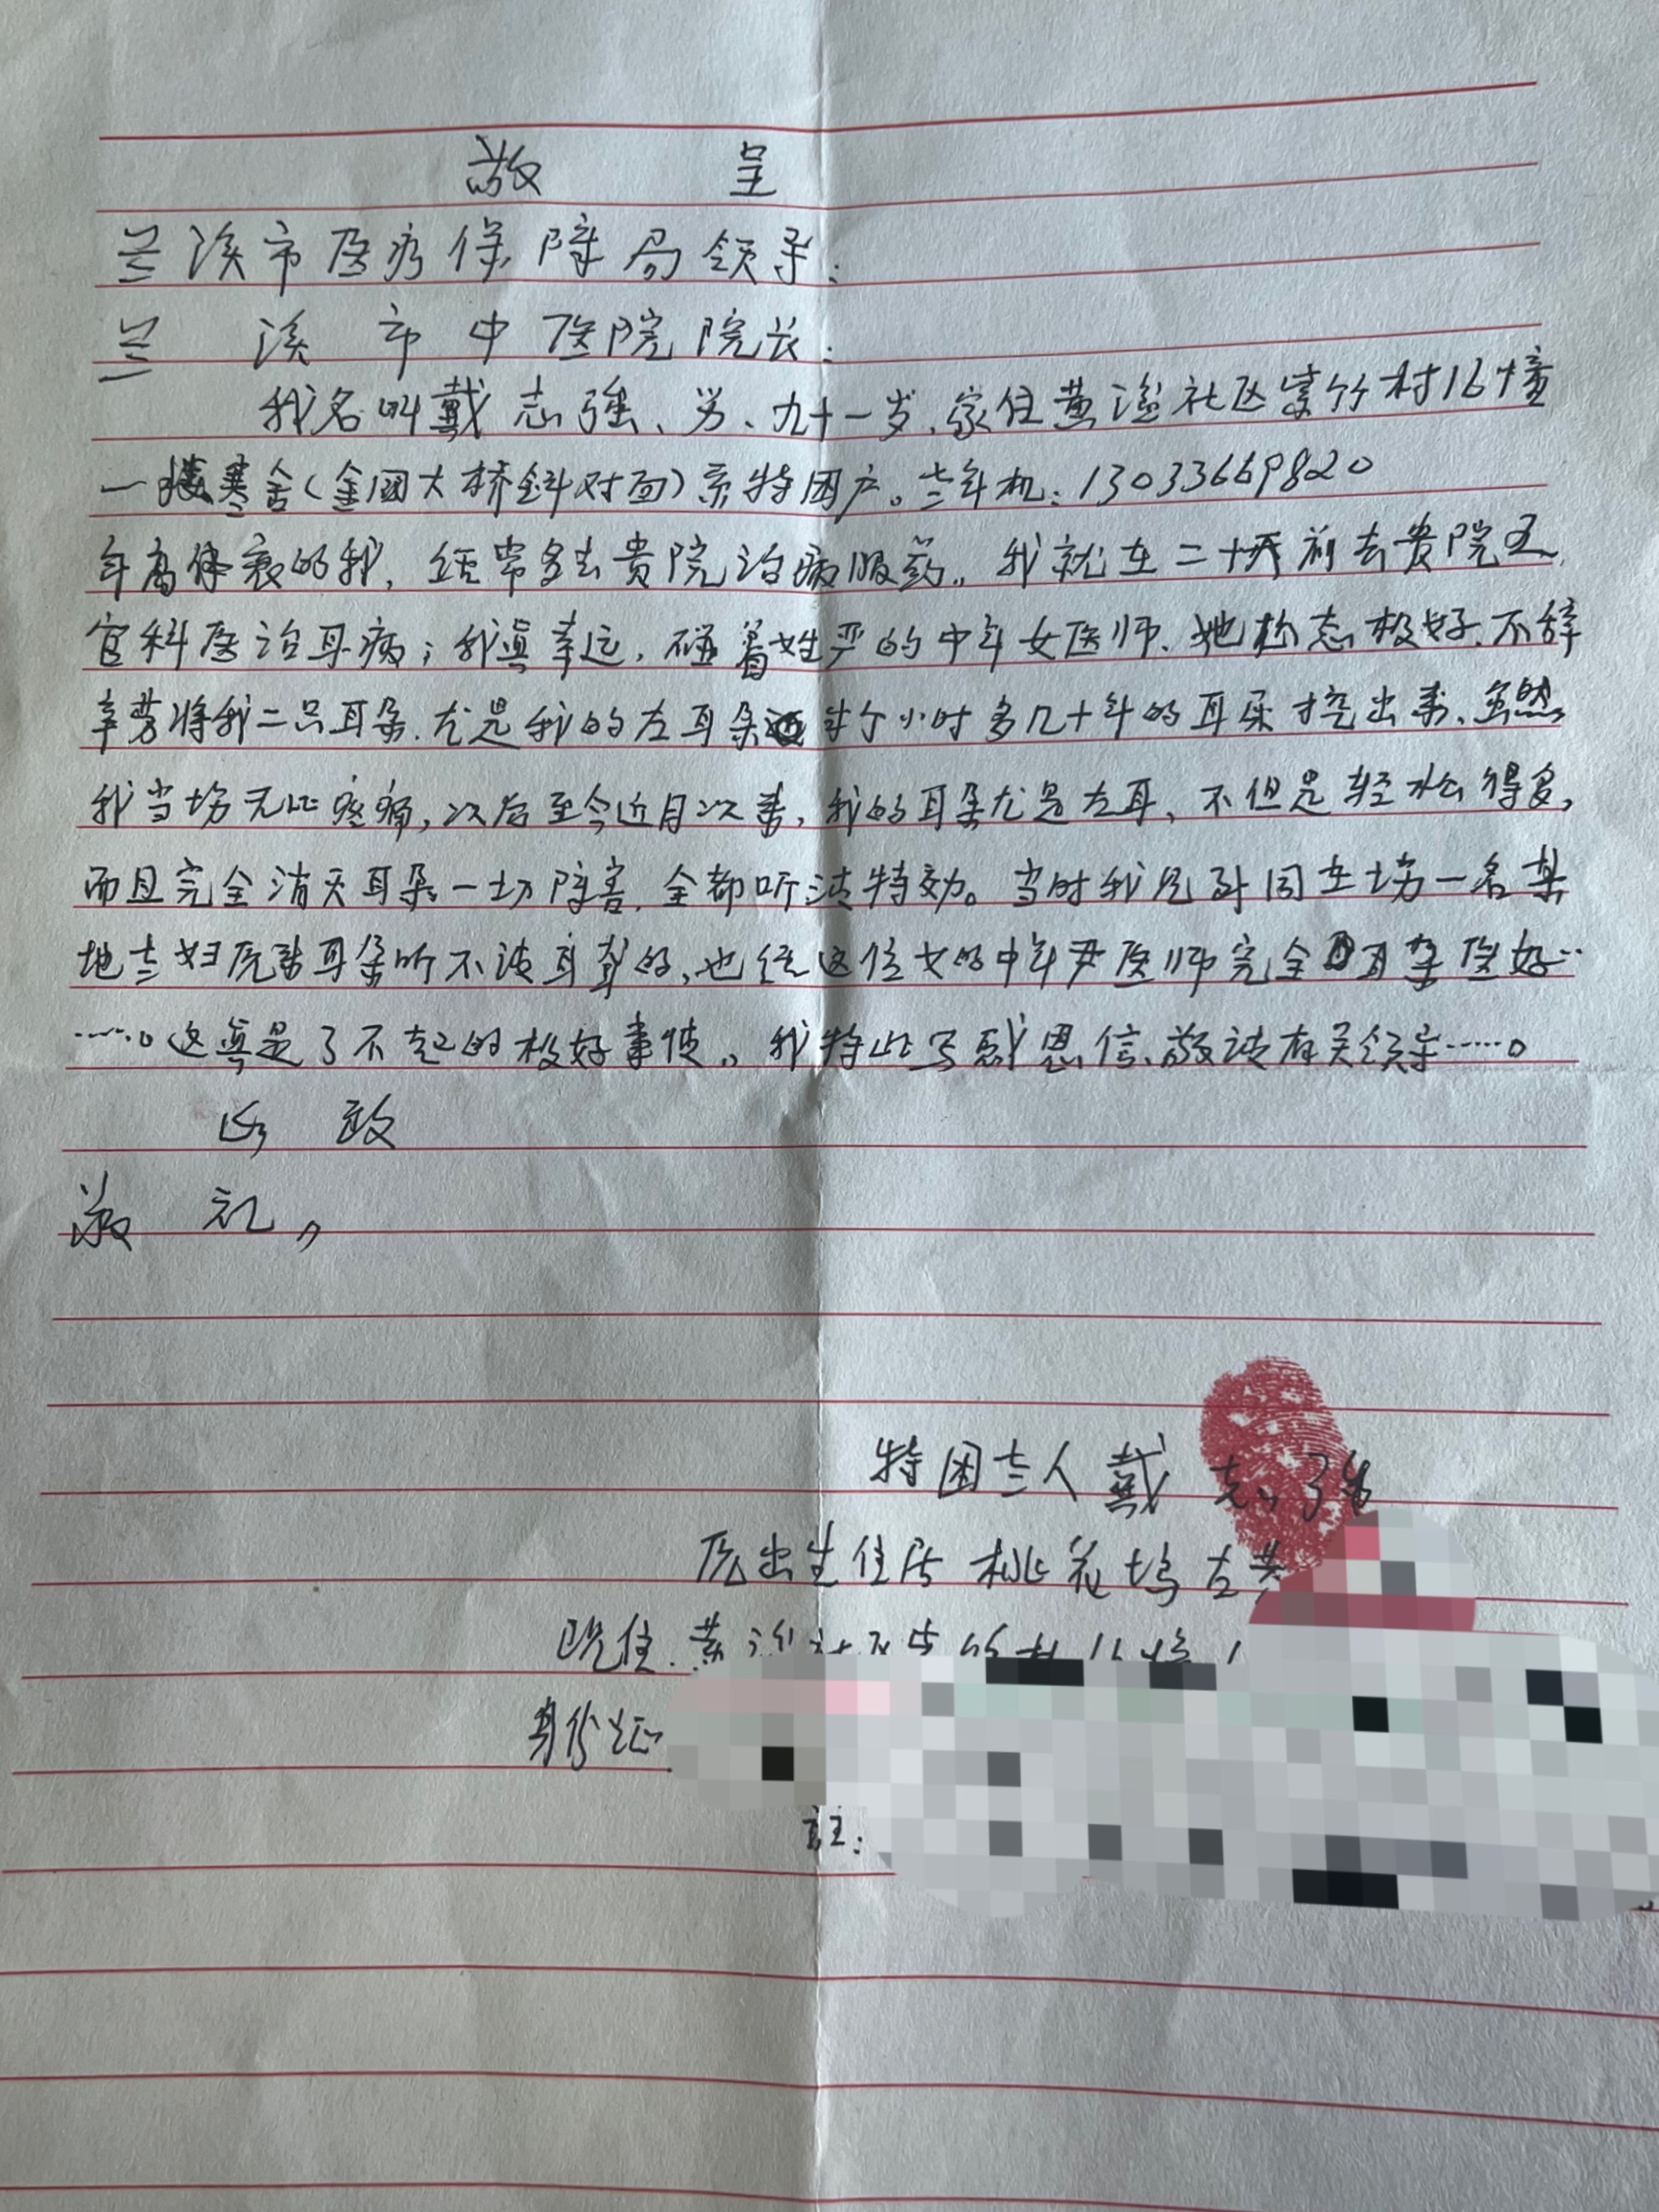 敬 呈
兰溪市医疗保障局领导：
兰 溪 市 中 医院 院长：
我名叫戴志强、男、九十一岁、家住黄湓社区紫竹村16幢
一楼寒舍（金园大桥斜对面）系特困户。老年机：13033669820
年高体衰的我，经常多去贵院治病服药。我就在二十天前去贵院五
官科医治耳病；我真幸运，碰着姓严的中年女医师、她态极好、不辞
辛劳将我二只耳朵、尤是我的左耳朵半个小时多几十年的耳屎挖出来、虽然
我当场无比疼痛，次后至今近月次来，我的耳朵尤是左耳、不但是轻松得多，
而且完全消灭耳朵一切障害、全部听清特效。当时我见到同在场一名某
地老妇原来耳朵听不清耳聋的，也经这位女的中年尹医师完全耳朵医好‥
……。这真是了不起的极好事情。我特此写感恩信、敬请有关领导……。
此 致
敬 礼，
特困老人戴志强
原出生住所 桃花坞古
现住：黄湓社区紫竹村16幢1
身份证
註：